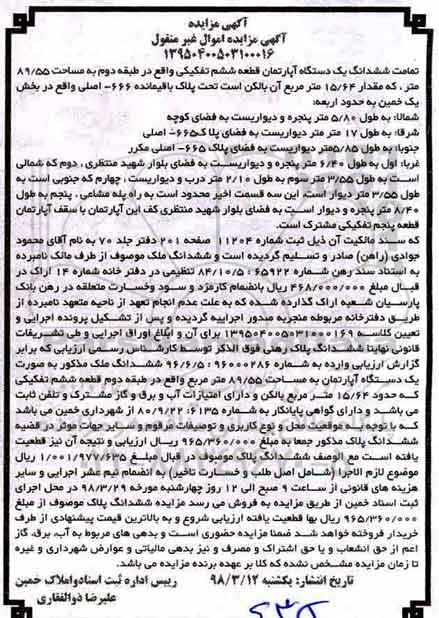 آگهی مزایده
آگهی مزایده اموال غیر منقول
۱۳۹۵۰۴۰۰۵۰۳۱۰۰۰۱۶
تمامت ششدانگ یک دستگاه آپارتمان قطعه ششم تفکیکی واقع در طبقه دوم به مساحت ۸۹/۵۵
متر ، که مقدار ۱۵/۶۴ متر مربع آن بالکن است تحت پلاک باقیمانده ۶۶۶- اصلی واقع در بخش
یک خمین به حدود اربعه:
شمالا: به طول ۵/۸۰ متر پنجره و دیواریست به فضای کوچه
شرقا: به طول ۱۷ متر متر دیواریست به فضای پلا ک۶۶۵- اصلی
جنوبا: به طول ۵/۸۵متر دیواریست به فضای پلاک ۶۶۵- اصلی مکرر
غربا: اول به طول ۶/۴۰ متر پنجره و دیواریست به فضای بلوار شهید منتظری ، دوم که شمالی
است به طول ۳/۵۵ متر سوم به طول ۲/۱۰ متر درب و دیواریست ، چهارم که جنوبی است به
طول ۳/۵۵ متر دیوار است. این سه قسمت اخیر محدود است به راه پله مشاعی ، پنجم به طول
۸/۴۰ متر پنجره و دیوار است به فضای بلوار شهید منتظری کف این آپارتمان با سقف آپارتمان
قطعه پنجم تفکیکی مشترک است.
که سند مالکیت آن ذیل ثبت شماره ۱۱۲۰۴ صفحه ۲۰۱ دفتر جلد ۷۰ به نام آقای محمود
جوادی (راهن) صادر و تسلیم گردیده است و ششدانگ ملک موصوف از طرف مالک نامبرده
به استناد سند رهن شماره ۶۵۹۲۲ : ۸۴/۱۰/۵ تنظیمی در دفتر خانه شماره ۱۴ اراک در
قبال مبلغ ۴۶۸/۰۰۰/۰۰۰ ریال بانضمام کارمزد و سود وخسارت متعلقه در رهن بانک
پارسیان شعبه اراک گذارده شده که به علت عدم انجام تعهد از ناحیه متعهد نامبرده از
طریق دفترخانه مربوطه منجربه صدور اجراییه گردیده و پس از تشکیل پرونده اجرایی و
تعیین کلاسه ۱۳۹۵۰۴۰۰۵۰۳۱۰۰۰۱۶۹ برای آن و ابلاغ اوراق اجرایی و طی تشریفات
قانونی نهایتا ششدانگ پلاک رهنی فوق الذکر توسط کارشناس رسمی ارزیابی که برابر
گزارش ارزیابی وارده به شماره ۹۶۰۰۰۲۸۶ : ۹۶/۶/۵ ششدانگ ملک مذکور به صورت
یک دستگاه آپارتمان به مساحت ۸۹/۵۵ متر مربع واقع در طبقه دوم قطعه ششم تفکیکی
که حدود ۱۵/۶۴ متر مربع بالکن و دارای امتیازات آب و برق و گاز مشترک و تلفن ثابت
می باشد و دارای گواهی پایانکار به شماره ۶۱۳۵ : ۸۰/۹/۲۲ از شهرداری خمین می باشد
که با توجه به موقعیت محل و نوع کاربری و توصیفات مرقوم و سایر جهات موثر در قضیه
ششدانگ پلاک مذکور جمعا به مبلغ ۹۶۵/۳۶۰/۰۰۰ ریال ارزیابی و نتیجه آن نیز قطعیت
یافته است مع الوصف ششدانگ پلاک موصوف در قبال مبلغ ۱/۰۰۱/۹۷۷/۶۳۵ ریال
موضوع لازم الاجرا (شامل اصل طلب و خسارت تاخیر) به انضمام نیم عشر اجرایی و سایر
هزینه های قانونی از ساعت ۹ صبح الی ۱۲ روز چهارشنبه مورخه ۹۸/۳/۲۹ در محل اجرای
ثبت اسناد خمین از طریق مزایده به فروش می رسد مزایده ششدانگ پلاک موصوف از مبلغ
۹۶۵/۳۶۰/۰۰۰ ریال بها قطعیت یافته ارزیابی شروع و به بالاترین قیمت پیشنهادی از طرف
خریدار فروخته خواهد شد ضمنا مزایده حضوری است و بدهی های مربوط به آب، برق، گاز
اعم از حق انشعاب و یا حق اشتراک و مصرف و نیز بدهی مالیاتی و عوارض شهرداری و غیره
تا زمان مزایده مشخص نشده که کلا بر عهده برنده مزایده می باشد.
تاریخ انتشار: یکشنبه ۹۸/۳/۱۲ رییس اداره ثبت اسنادواملاک خمین
علیرضا ذوالفقاری